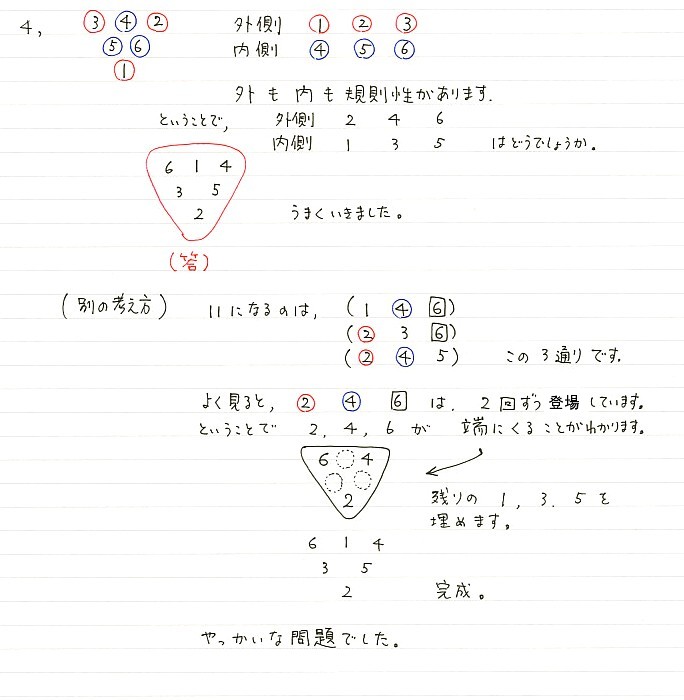 4,
③ ④ ②
⑤ ⑥
①
外側 ① ② ③
内側 ④ ⑤ ⑥
外も内も規則性があります.
ということで,
外側 2 4 6
内側 1 3 5 はどうでしょうか。
6 1 4
3 5
2
うまくいきました。
(答)
(別の考え方)
11になるのは, (1 ④ 6)
(② 3 6)
(② ④ 5) この3通りです.
よく見ると, ② ④ 6 は、2回ずつ登場しています。
ということで 2, 4, 6 が 端にくることがわかります。
6 4
2
残りの 1, 3, 5 を
埋めます。
6 1 4
3 5
2
完成。
やっかいな問題でした。